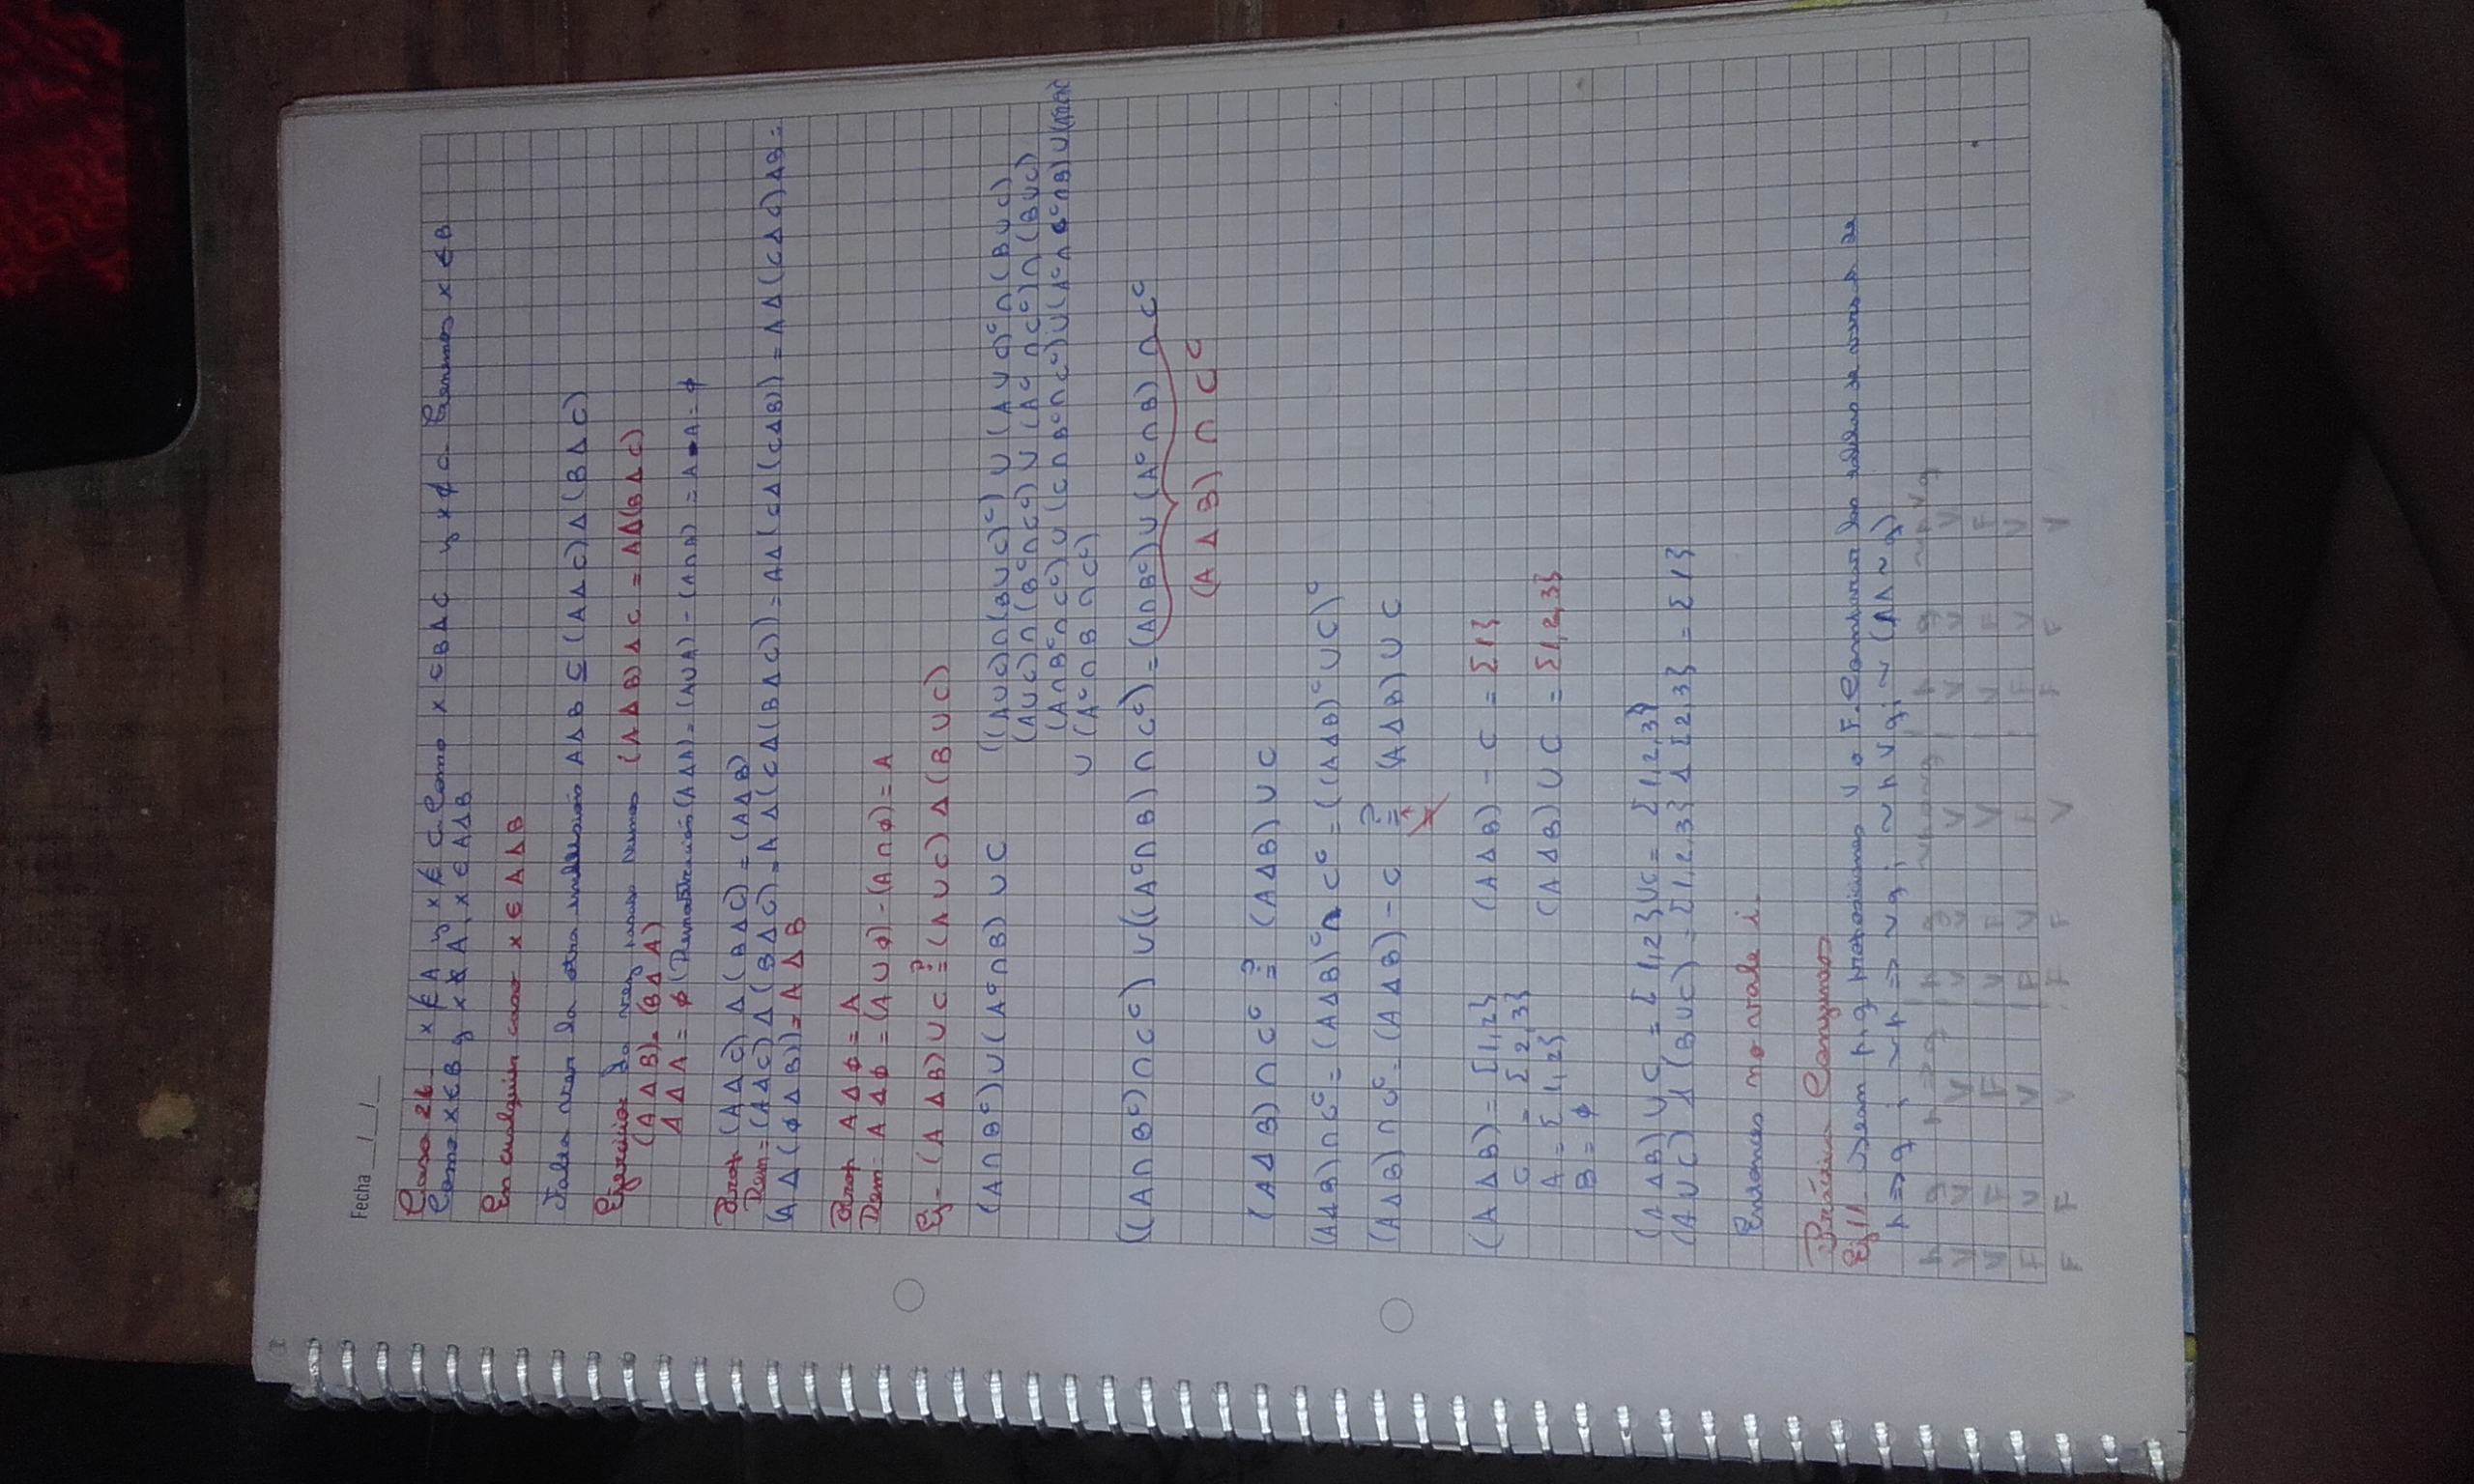 Fecha __/__/__
Caso 2b. x ∉ A y x ∉ C. Como x ∈ B Δ C y x ∉ C. Tenemos x ∈ B
Como x ∈ B y x ∉ A, x ∈ A Δ B
En cualquier caso x ∈ A Δ B
Falta ver la otra inclusión A Δ B ⊆ (A Δ C) Δ (B Δ C)
Ejercicio: La vez vimos (A Δ B) Δ C = A Δ (B Δ C)
(A Δ B) = (B Δ A)
A Δ A = ϕ (Demostración (A Δ A) = (A ∪ A) - (A ∩ A) = A - A = ϕ
Prop (A Δ C) Δ (B Δ C) = (A Δ B)
Dem = (A Δ C) Δ (B Δ C) = A Δ (C Δ (B Δ C)) = A Δ (C Δ (C Δ B)) = A Δ (C Δ C) Δ B =
(A Δ (ϕ Δ B)) = A Δ B
Prop A Δ ϕ = A
Dem- A Δ ϕ = (A ∪ ϕ) - (A ∩ ϕ) = A
Ej- (A Δ B) ∪ C ≟ (A ∪ C) Δ (B ∪ C)
(A ∩ Bᶜ) ∪ (Aᶜ ∩ B) ∪ C ((A ∪ C) ∩ (B ∪ C)ᶜ) ∪ (A ∪ C)ᶜ ∩ (B ∪ C)
(A ∪ C) ∩ (Bᶜ ∩ Cᶜ) ∪ (Aᶜ ∩ Cᶜ) ∩ (B ∪ C)
(A ∩ Bᶜ ∩ Cᶜ) ∪ (C ∩ Bᶜ ∩ Cᶜ) ∪ (Aᶜ ∩ Cᶜ ∩ B) ∪
∪ (Aᶜ ∩ B ∩ Cᶜ)
((A ∩ Bᶜ) ∩ Cᶜ) ∪ ((Aᶜ ∩ B) ∩ Cᶜ) = (A ∩ Bᶜ) ∪ (Aᶜ ∩ B) ∩ Cᶜ
(A Δ B) ∩ Cᶜ
(A Δ B) ∩ Cᶜ ≟ (A Δ B) ∪ C
(A Δ B) ∩ Cᶜ = (A Δ B)ᶜ ∩ Cᶜ = ((A Δ B)ᶜ ∪ C)ᶜ
(A Δ B) ∩ Cᶜ = (A Δ B) - C ≟ (A Δ B) ∪ C
(A Δ B) = {1,2} (A Δ B) - C = {1}
C = {2,3}
A = {1,2} (A Δ B) ∪ C = {1,2,3}
B = ϕ
(A Δ B) ∪ C = {1,2} ∪ C = {1,2,3}
(A ∪ C) Δ (B ∪ C) = {1,2,3} Δ {2,3} = {1}
Entonces no vale i.
Práctica Conjuntos
Ej 11. Sean p, q proposiciones V o F. Comparar las tablas de verdad de
p ⇒ q ; ~p ⇒ ~q ; ~p ∨ q ; ~ (p ∧ ~q)
p q p ⇒ q p q ~p ⇒ ~q p q ~p ∨ q
V V V V V V V V V
V F F V F V V F F
F V V F V F F V V
F F V F F V F F V